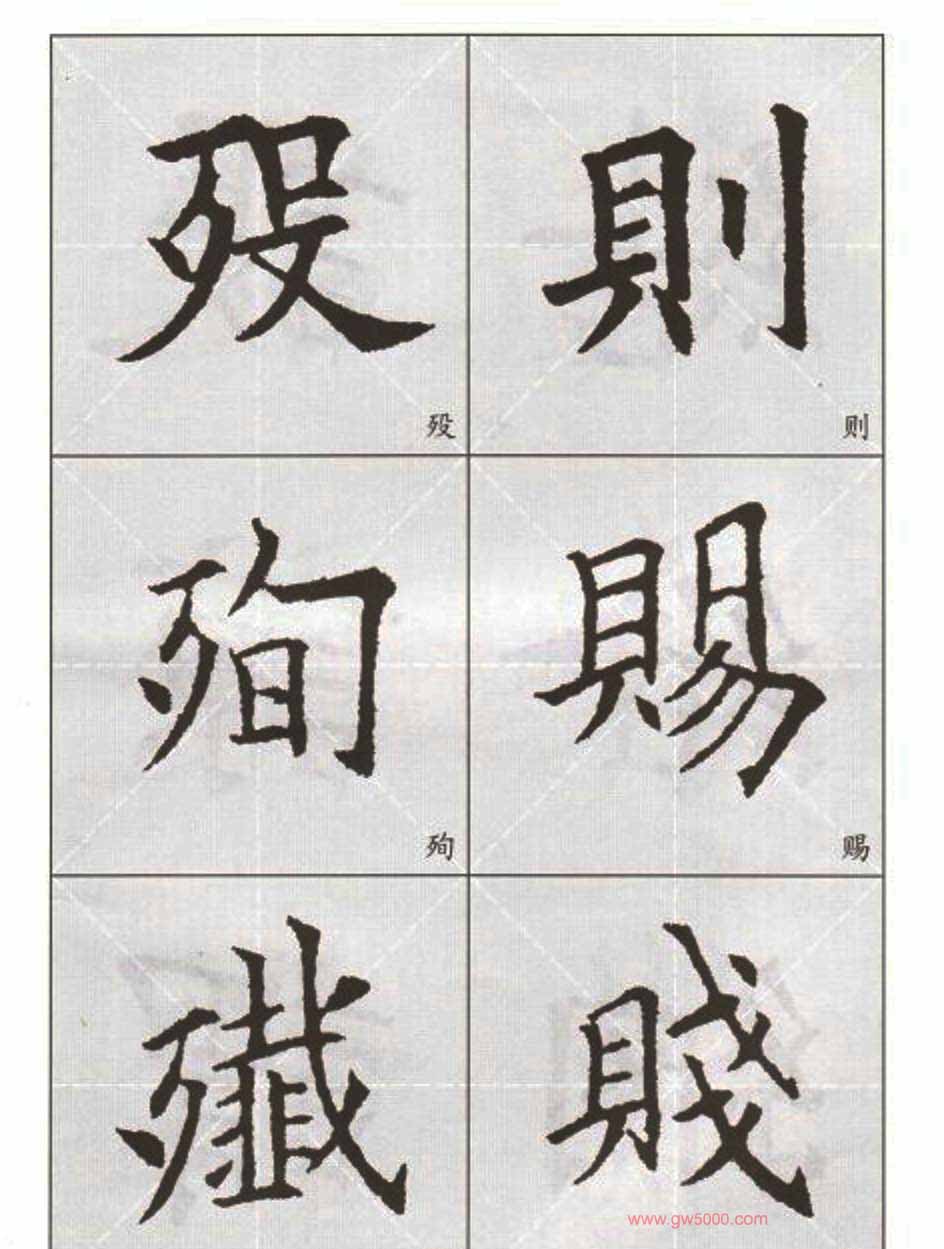 殁 則
殁 则
殉 賜
殉 赐
殲 賤
www.gw5000.com